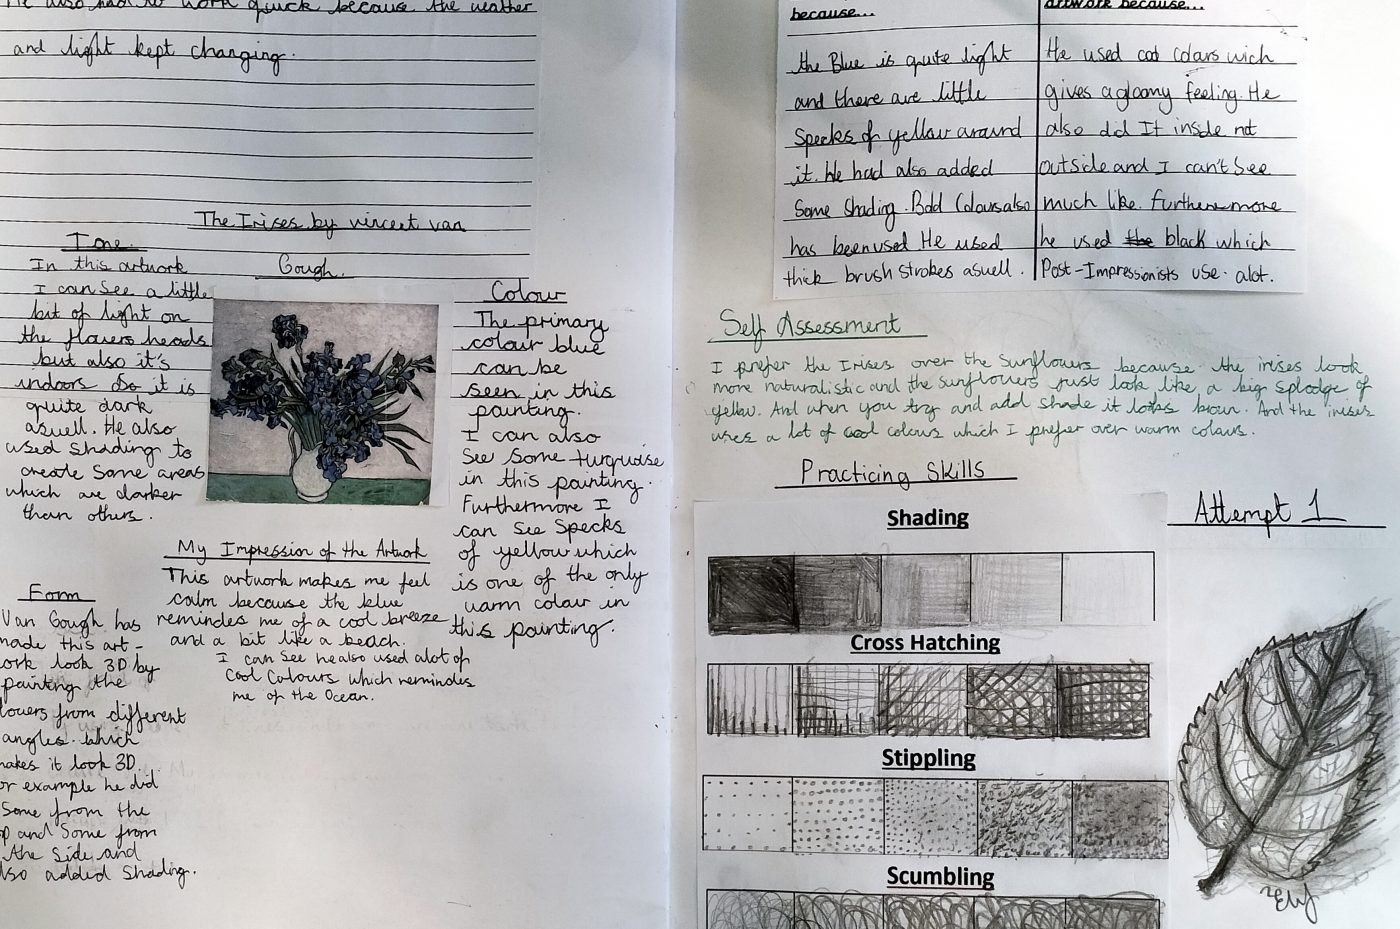 He also had to work quick because the weather
and light kept changing.
The Irises by vincent van
Gough.
Tone.
In this artwork
I can see a little
bit of light on
the flowers heads
but also it's
indoors so it is
quite dark
aswell. He also
used shading to
create some areas
which are darker
than others.
Colour
The primary
colour blue
can be
seen in this
painting.
I can also
see some turquoise
in this painting.
Furthermore I
can see specks
of yellow which
is one of the only
warm colour in
this painting.
My Impression of the Artwork
This artwork makes me feel
calm because the blue
remindes me of a cool breeze
and a bit like a beach.
I can see he also used alot of
Cool Colours which remindes
me of the Ocean.
Form
Van Gough has
made this art-
ork look 3D by
painting the
lowers from different
angles which
makes it look 3D.
or example he did
Some from the
op and Some from
the Side and
lso added Shading.
because...
the Blue is quite light
and there are little
Specks of yellow around
it. He had also added
Some Shading. Bold Colours also
has been used He used
thick brush strokes aswell.
artwork because...
He used cool colours wich
gives a gloomy feeling. He
also did It inside not
outside and I can't see
much like. furthermore
he used the black which
Post-Impressionists use alot.
Self Assessment
I prefer the Irises over the Sunflowers because the irises look
more naturalistic and the sunflowers just look like a big splodge of
yellow. And when you try and add shade it looks brown. And the irises
uses a lot of cool colours which I prefer over warm colours.
Practicing Skills
Shading
Cross Hatching
Stippling
Scumbling
Attempt 1